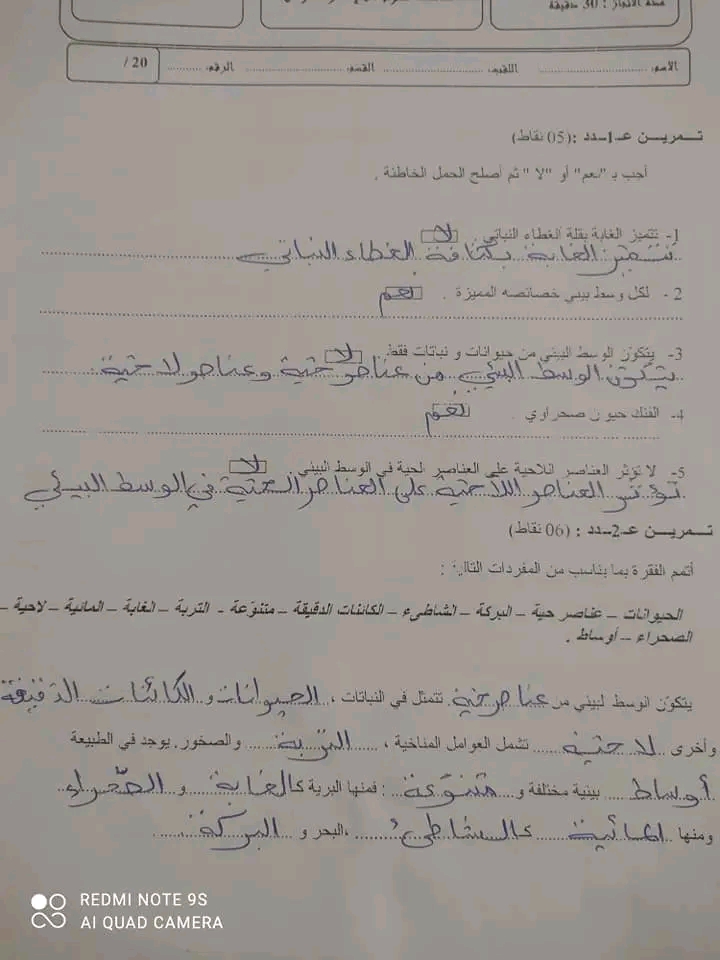 مدة الانجاز : 30 دقيقة
الاسم: ........ اللقب: ........ القسم: ........ الرقم: ........ / 20
تـــمريـــن عـ1ـدد :(05 نقاط)
أجب بـ "نعم" أو "لا" ثم أصلح الجمل الخاطئة .
1- تتميز الغابة بقلة الغطاء النباتي . لا
تتميز الغابة بكثافة الغطاء النباتي
2 - لكل وسط بيئي خصائصه المميزة . نعم
3- يتكون الوسط البيئي من حيوانات و نباتات فقط. لا
يتكون الوسط البيئي من عناصر حية وعناصر لا حية.
4- الفنك حيون صحراوي . نعم
5- لا تؤثر العناصر اللاحية على العناصر الحية في الوسط البيئي لا
تؤثر العناصر اللاحية على العناصر الحية في الوسط البيئي
تـــمريـــن عـ2ـدد : (06 نقاط)
أتمم الفقرة بما يناسب من المفردات التالية :
الحيوانات – عناصر حية – البركة – الشاطىء – الكائنات الدقيقة – متنوّعة - التربة – الغابة – المائية – لاحية –
الصحراء – أوساط .
يتكوّن الوسط البيئي من عناصر حية تتمثل في النباتات ، الحيوانات و الكائنات الدقيقة
وأخرى لا حية تشمل العوامل المناخية ، التربة والصخور. يوجد في الطبيعة
أوساط بيئية مختلفة و متنوّعة : فمنها البرية كالغابة و الصّحراء
ومنها المائية كـالشاطئ ،البحر و البركة
REDMI NOTE 9S
AI QUAD CAMERA